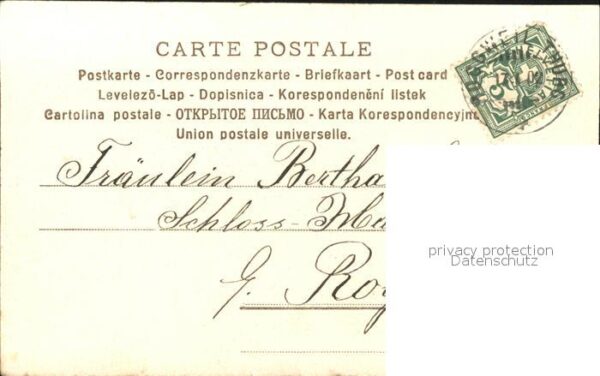 CARTE POSTALE
Postkarte - Correspondenzkarte - Briefkaart - Post card
Levelező-Lap - Dopisnica - Korespondenění listek
Cartolina postale - ОТКРЫТОЕ ПИСЬМО - Karta Korespondencyjn
Union postale universelle.
Fräulein Bertha
Schloss-Ma
privacy protection
Datenschutz